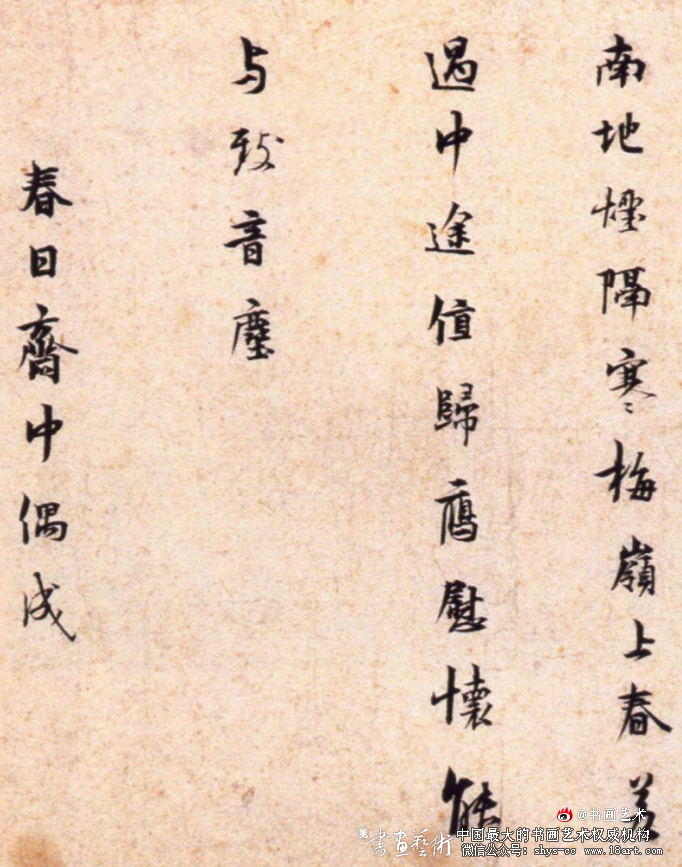 南地煙隔寒梅嶺上春若
過中途值歸鴈慰懷能
与致音塵
春日齋中偶成
@书画艺术
書畫藝術
中国最大的书画艺术权威机构
微信公众号：shys-cc www.18art.com